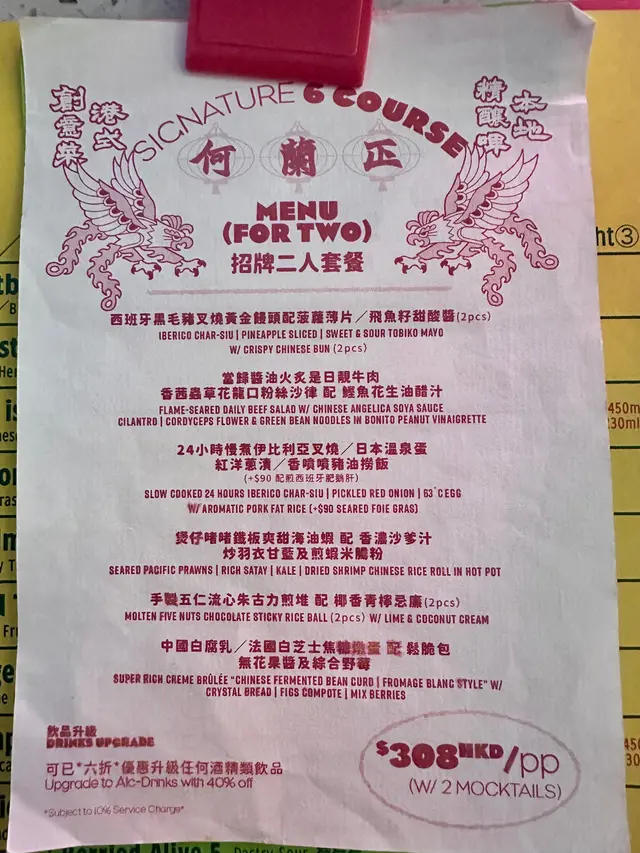 港式
創薏英
SIGNATURE 6 COURSE
本地
精釀啤
何蘭正
MENU
(FOR TWO)
招牌二人套餐
西班牙黑毛豬叉燒黃金饅頭配菠蘿薄片／飛魚籽甜酸醬(2pcs)
IBERICO CHAR-SIU | PINEAPPLE SLICED | SWEET & SOUR TOBIKO MAYO
W/ CRISPY CHINESE BUN (2pcs)
當歸醬油火炙是日靚牛肉
香茜蟲草花龍口粉絲沙律 配 鰹魚花生油醋汁
FLAME-SEARED DAILY BEEF SALAD W/ CHINESE ANGELICA SOYA SAUCE
CILANTRO | CORDYCEPS FLOWER & GREEN BEAN NOODLES IN BONITO PEANUT VINAIGRETTE
24小時慢煮伊比利亞叉燒／日本溫泉蛋
紅洋蔥漬／香噴噴豬油撈飯
(+$90 配煎西班牙肥鵝肝)
SLOW COOKED 24 HOURS IBERICO CHAR-SIU | PICKLED RED ONION | 63°C EGG
W/ AROMATIC PORK FAT RICE (+$90 SEARED FOIE GRAS)
煲仔啫啫鐵板爽甜海油蝦 配 香濃沙爹汁
炒羽衣甘藍及煎蝦米腸粉
SEARED PACIFIC PRAWNS | RICH SATAY | KALE | DRIED SHRIMP CHINESE RICE ROLL IN HOT POT
手製五仁流心朱古力煎堆 配 椰香青檸忌廉(2pcs)
MOLTEN FIVE NUTS CHOCOLATE STICKY RICE BALL (2pcs) W/ LIME & COCONUT CREAM
中國白腐乳／法國白芝士焦糖燉蛋 配 鬆脆包
無花果醬及綜合野莓
SUPER RICH CREME BRÛLÉE "CHINESE FERMENTED BEAN CURD | FROMAGE BLANC STYLE" W/
CRYSTAL BREAD | FIGS COMPOTE | MIX BERRIES
飲品升級
DRINKS UPGRADE
可已*六折*優惠升級任何酒精類飲品
Upgrade to Alc-Drinks with 40% off
*Subject to 10% Service Charge*
$308HKD/pp
(W/ 2 MOCKTAILS)
ht③
450m
230ml